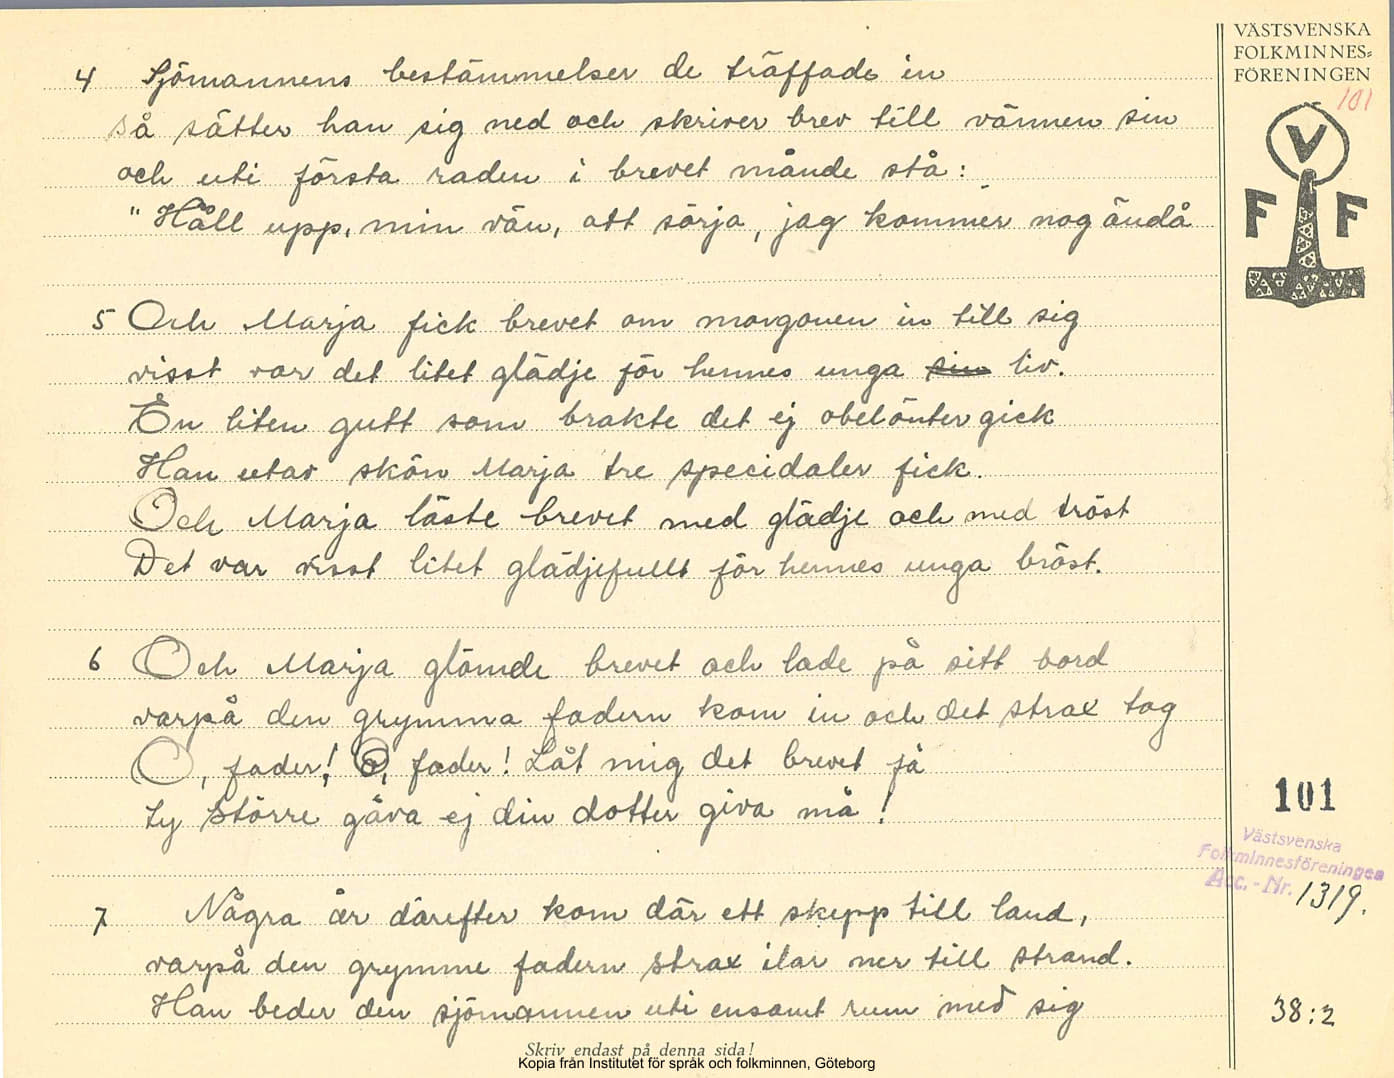 VÄSTSVENSKA
FOLKMINNES=
FÖRENINGEN
101
V
F F
4 Sjömannens bestämmelser de träffade in
så sätter han sig ned och skriver brev till vännen sin
och uti första raden i brevet månde stå:
"Håll upp, min vän, att sörja, jag kommer nog ändå
5 Och Marja fick brevet om morgonen in till sig
visst var det litet glädje för hennes unga sin liv.
En liten gutt som brakte det ej obelönter gick
Han utav skön Marja tre specidaler fick.
Och Marja läste brevet med glädje och med tröst
Det var visst litet glädjefullt för hennes unga bröst.
6 Och Marja glömde brevet och lade på sitt bord
varpå den grymma fadern kom in och det strax tog
O, fader! O, fader! Låt mig det brevet få
ty större gåva ej din dotter giva må!
7 Några år därefter kom där ett skepp till land,
varpå den grymme fadern strax ilar ner till strand.
Han beder den sjömannen uti ensamt rum med sig
101
Västsvenska
Folkminnesföreningen
Acc.-Nr. 1319.
38:2
Skriv endast på denna sida!
Kopia från Institutet för språk och folkminnen, Göteborg